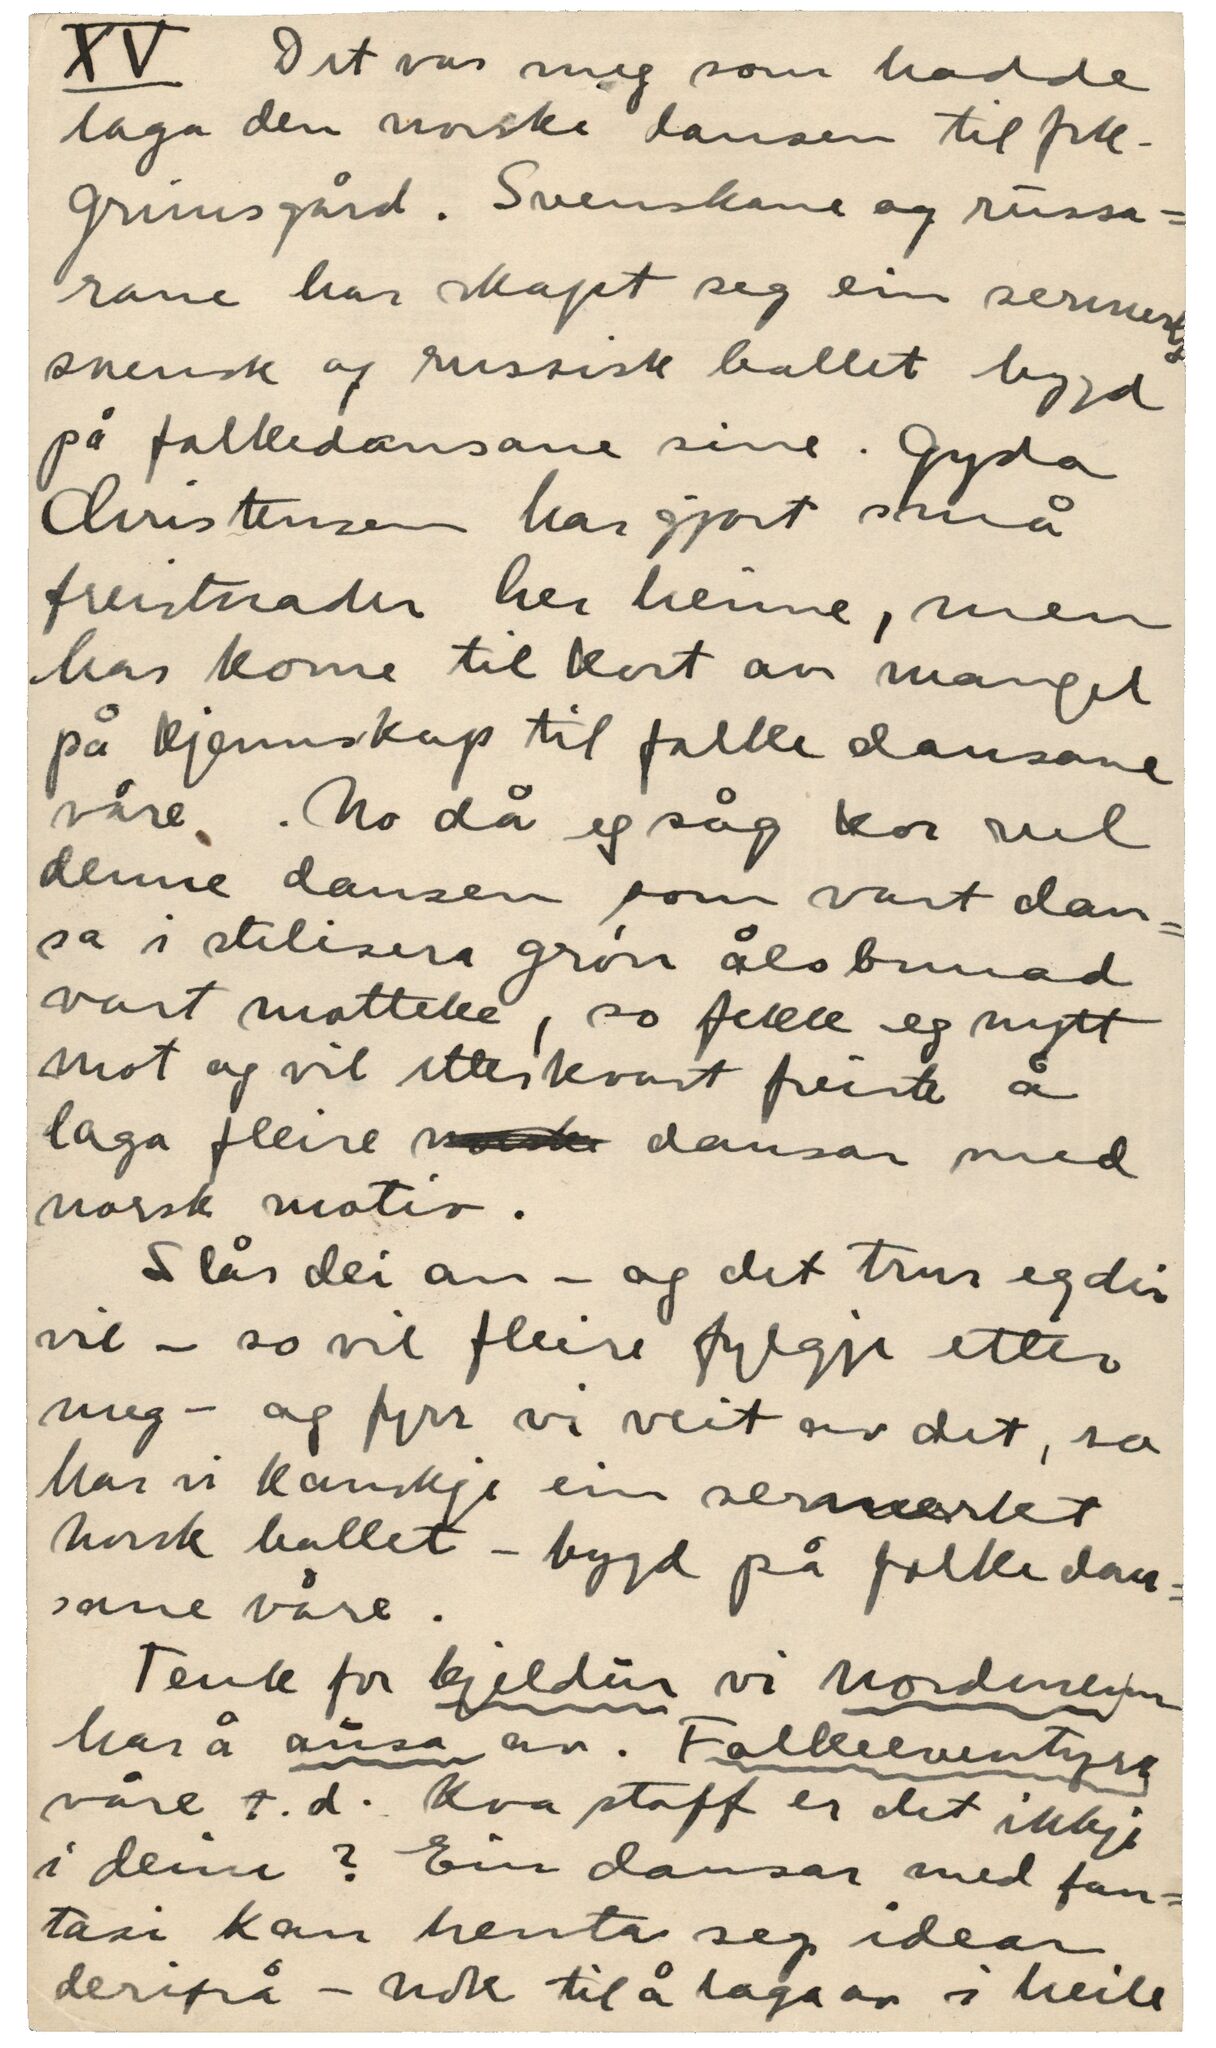 XV Det var meg som hadde
laga den norske dansen til frk.
Grimsgård. Svenskane og russa=
rane har skapt seg ein sermerkt
svensk og russisk ballet bygd
på folkedansane sine. Gyda
Christensen har gjort små
freistnader her heime, men
har kome til kort av mangel
på kjennskap til folkedansane
våre. No då eg såg kor vel
denne dansen som vart dan=
sa i stilisera grøn ålsbunad
vart motteke, so fekk eg nytt
mot og vil etterkvart freiste å
laga fleire norske dansar med
norsk motiv.
Slår dei an - og det trur eg dei
vil - so vil fleire fylgje etter
meg - og fyrr vi veit av det, so
har vi kanskje ein sermerket
norsk ballet - bygd på folkedan=
sane våre.
Tenk for kjeldur vi nordmenn
har å ausa av. Folkeeventyra
våre t.d. Kva stoff er det ikkje
i deim? Ein dansar med fan=
tasi kan henta seg idear
derifrå - nok til å laga av i heile